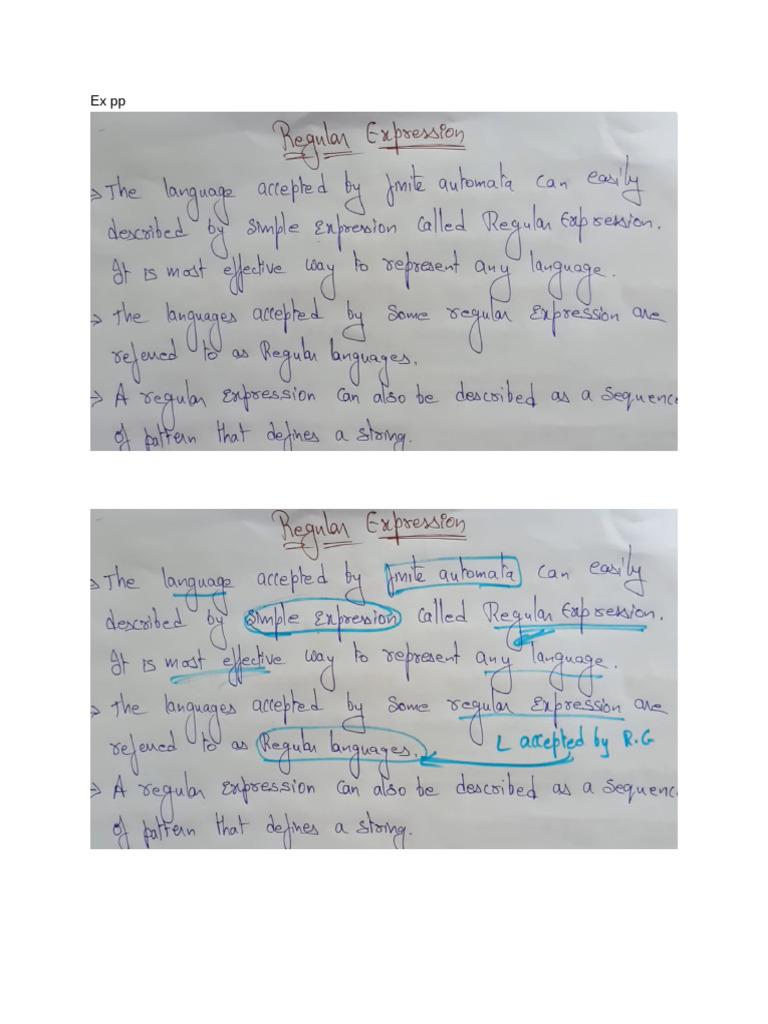 Ex pp
Regular Expression
→ The language accepted by finite automata can easily
described by simple expression called Regular Expression.
It is most effective way to represent any language.
→ The languages accepted by some regular expression are
referred to as Regular languages.
→ A regular expression can also be described as a sequence
of pattern that defines a string.
Regular Expression
→ The language accepted by finite automata can easily
described by simple expression called Regular Expression.
It is most effective way to represent any language.
→ The languages accepted by some regular expression are
referred to as Regular languages. L accepted by R.G
→ A regular expression can also be described as a sequence
of pattern that defines a string.